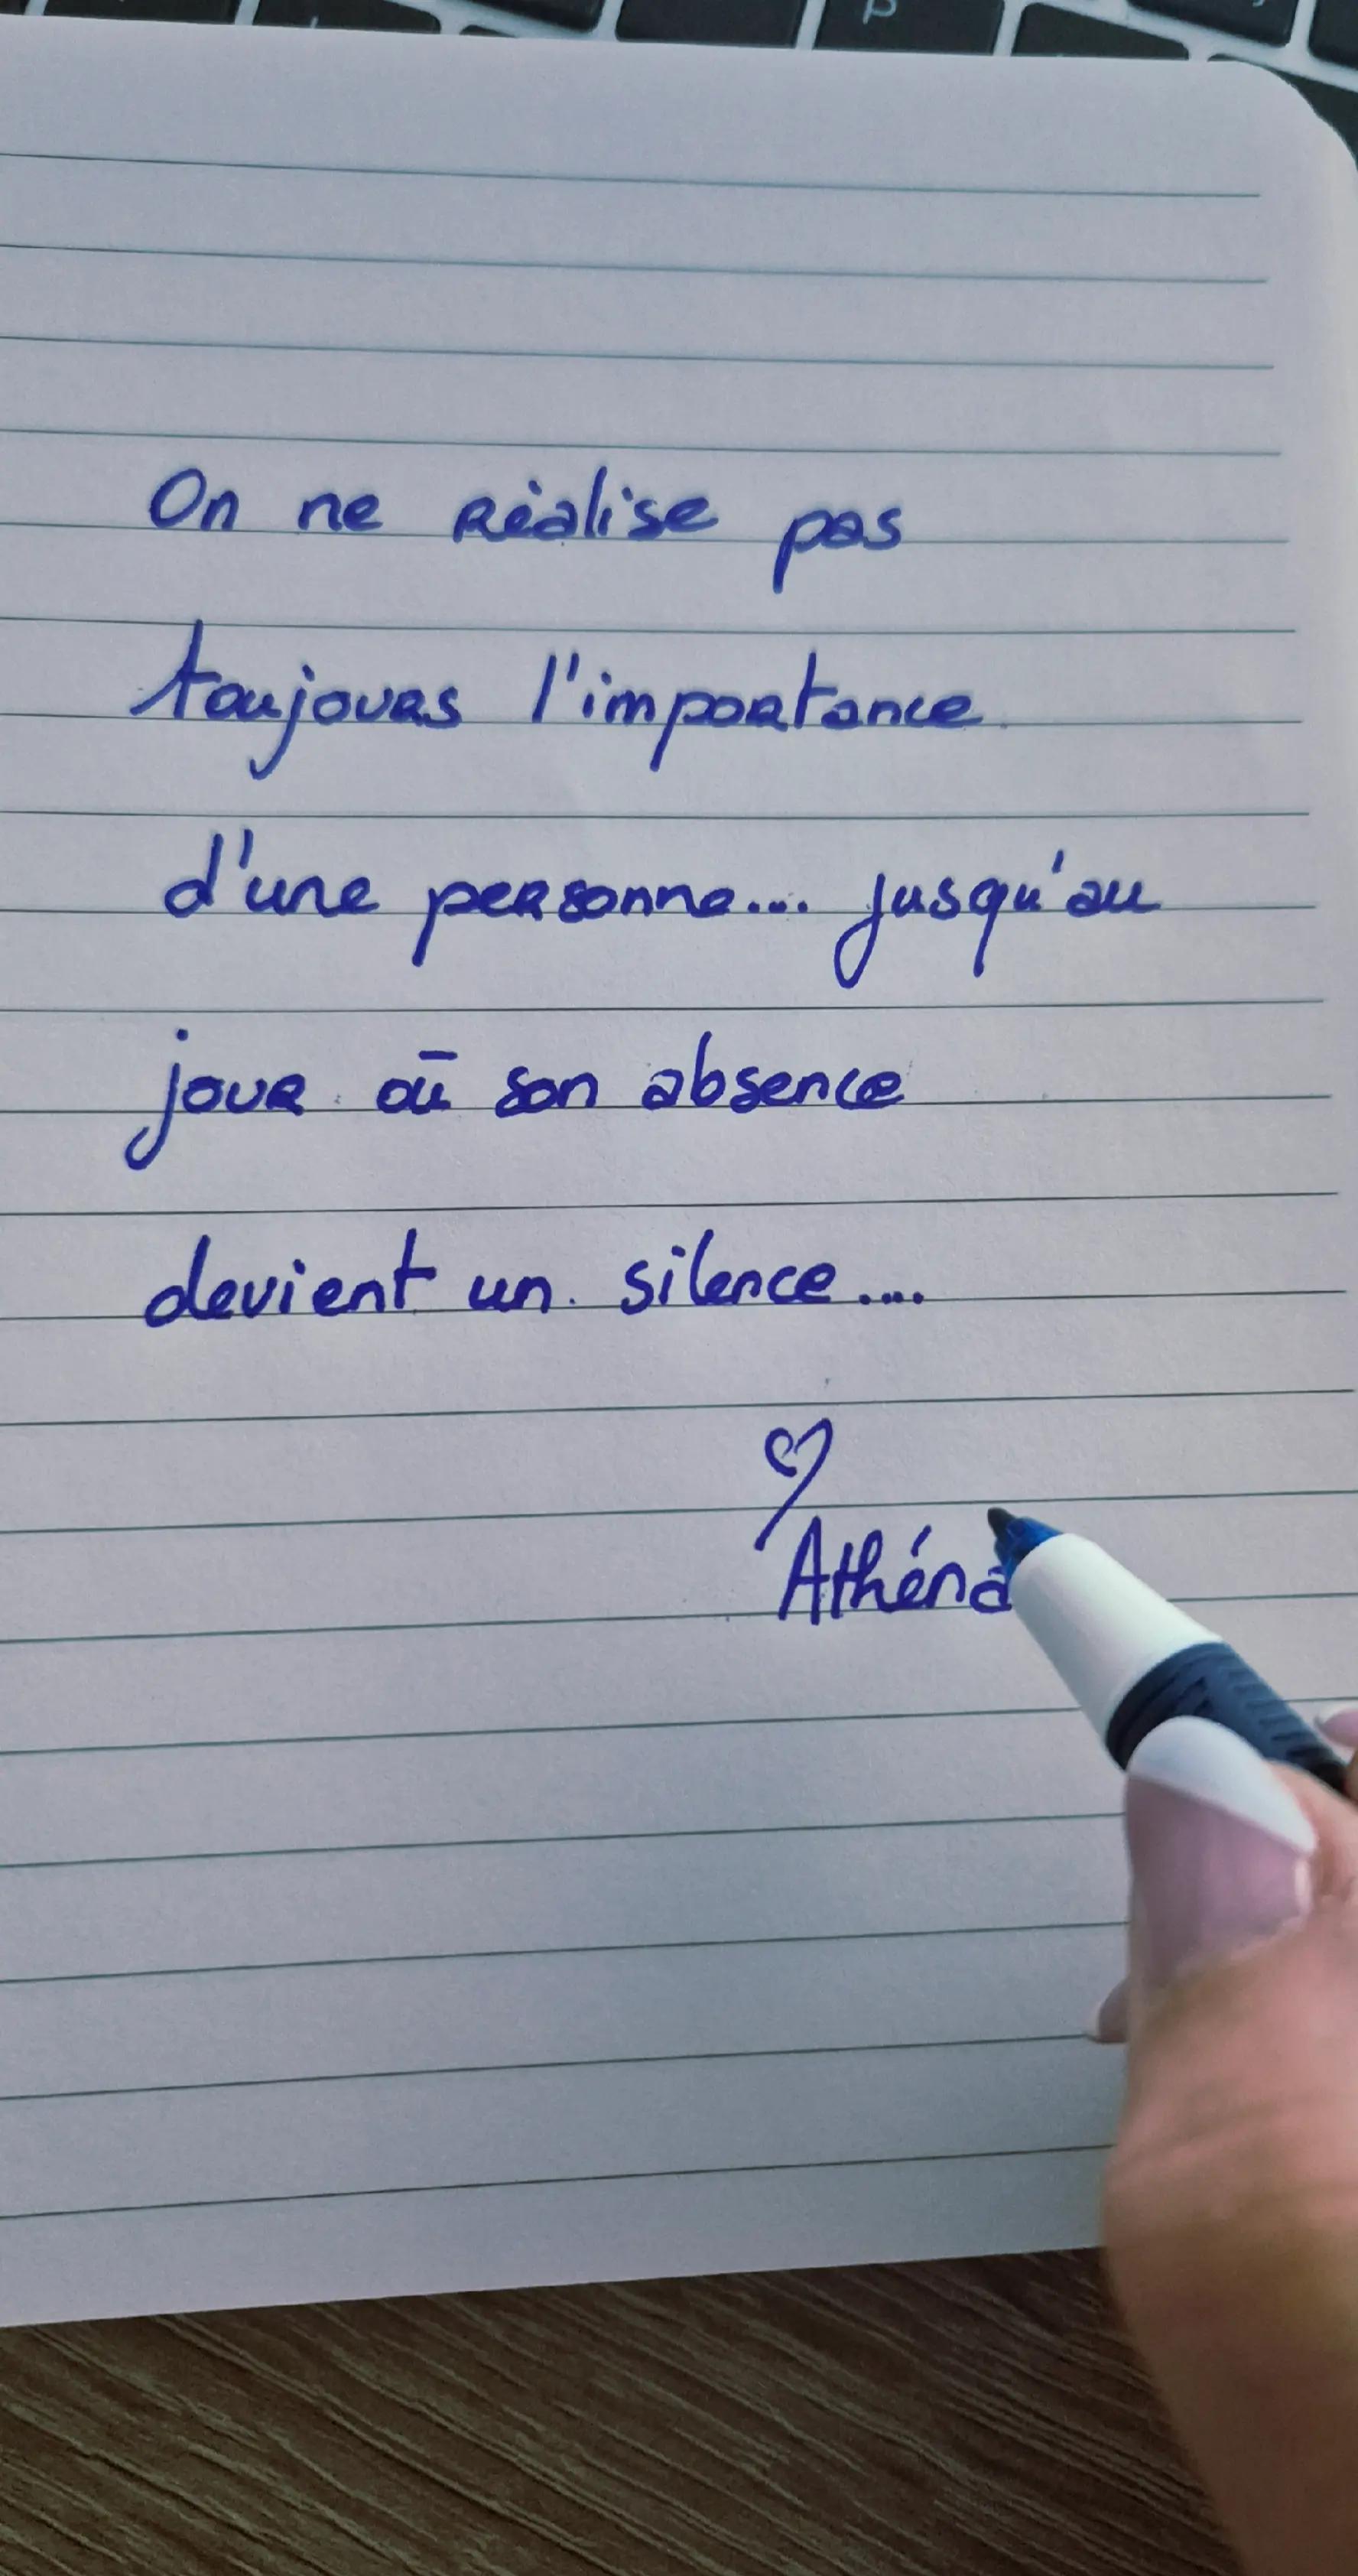 P
On ne réalise pas
toujours l'importance
d'une personne... jusqu'au
jour où son absence
devient un silence....
Athéna